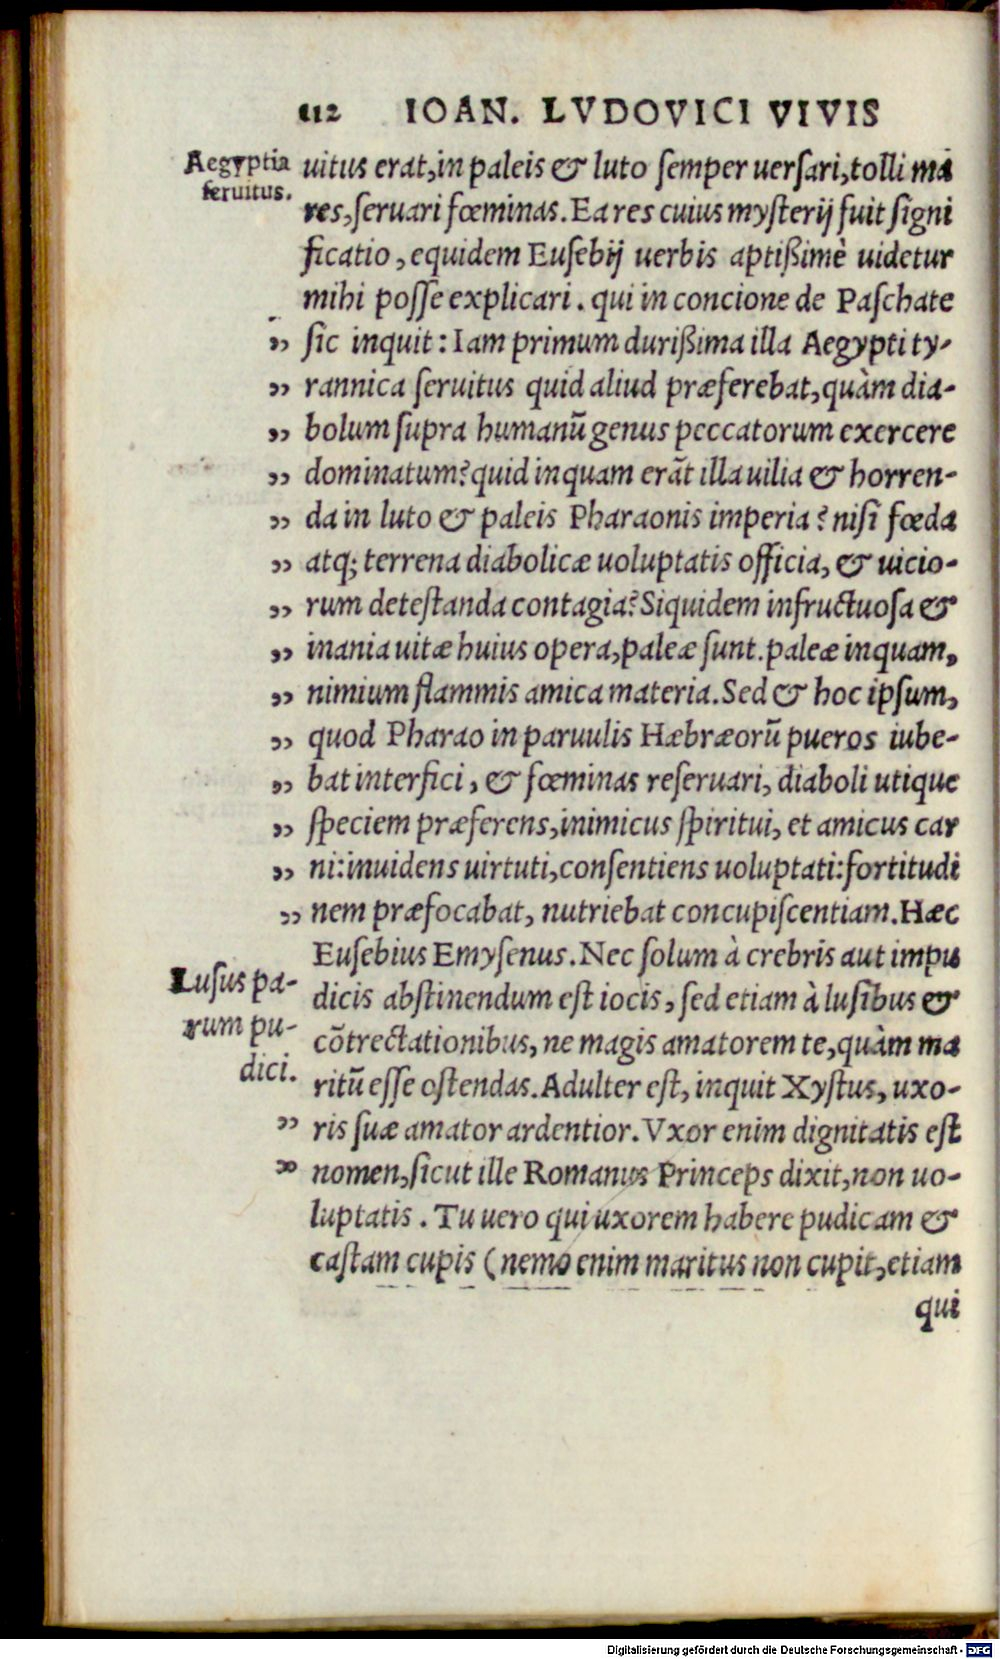 112 IOAN. LVDOVICI VIVIS
Aegyptia
seruitus.
uitus erat, in paleis & luto semper uersari, tolli ma
res, seruari fœminas. Ea res cuius mysterij fuit signi
ficatio, equidem Eusebij uerbis aptißimè uidetur
mihi posse explicari. qui in concione de Paschate
„ sic inquit: Iam primum durißima illa Aegypti ty-
„ rannica seruitus quid aliud præferebat, quàm dia-
„ bolum supra humanũ genus peccatorum exercere
„ dominatum? quid inquam erãt illa uilia & horren-
„ da in luto & paleis Pharaonis imperia? nisi fœda
„ atq; terrena diabolicæ uoluptatis officia, & uicio-
„ rum detestanda contagia? Siquidem infructuosa &
„ inania uitæ huius opera, paleæ sunt. paleæ inquam,
„ nimium flammis amica materia. Sed & hoc ipsum,
„ quod Pharao in paruulis Hæbræorũ pueros iube-
„ bat interfici, & fœminas reseruari, diaboli utique
„ speciem præferens, inimicus spiritui, et amicus car
„ ni: inuidens uirtuti, consentiens uoluptati: fortitudi
„ nem præfocabat, nutriebat concupiscentiam. Hæc
Eusebius Emysenus. Nec solum à crebris aut impu
Lusus pa-
rum pu-
dici.
dicis abstinendum est iocis, sed etiam à lusibus &
cõtrectationibus, ne magis amatorem te, quàm ma
ritũ esse ostendas. Adulter est, inquit Xystus, uxo-
„ ris suæ amator ardentior. Vxor enim dignitatis est
„ nomen, sicut ille Romanus Princeps dixit, non uo-
luptatis. Tu uero qui uxorem habere pudicam &
castam cupis (nemo enim maritus non cupit, etiam
qui
Digitalisierung gefördert durch die Deutsche Forschungsgemeinschaft - DFG